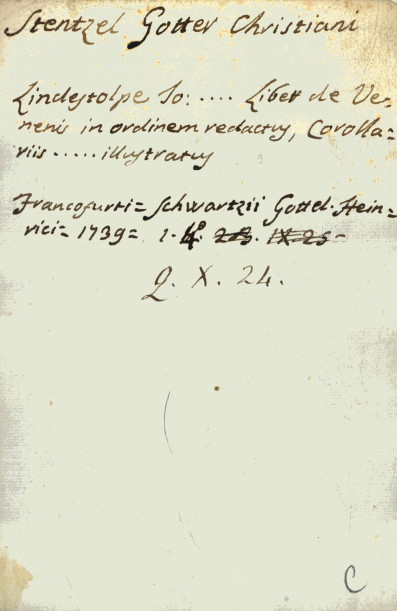 Stentzel Gotter Christiani
Lindestolpe Jo: .... Liber de Ve=
nenis in ordinem redactus, Corolla=
riis ..... illustratus
Francofurti= Schwartzii Gottel. Hein=
rici= 1739= 1. 4º. 2 B. IX 25
Q. X. 24.
C